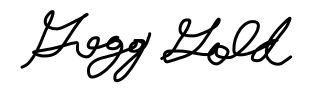 Gegg Gold